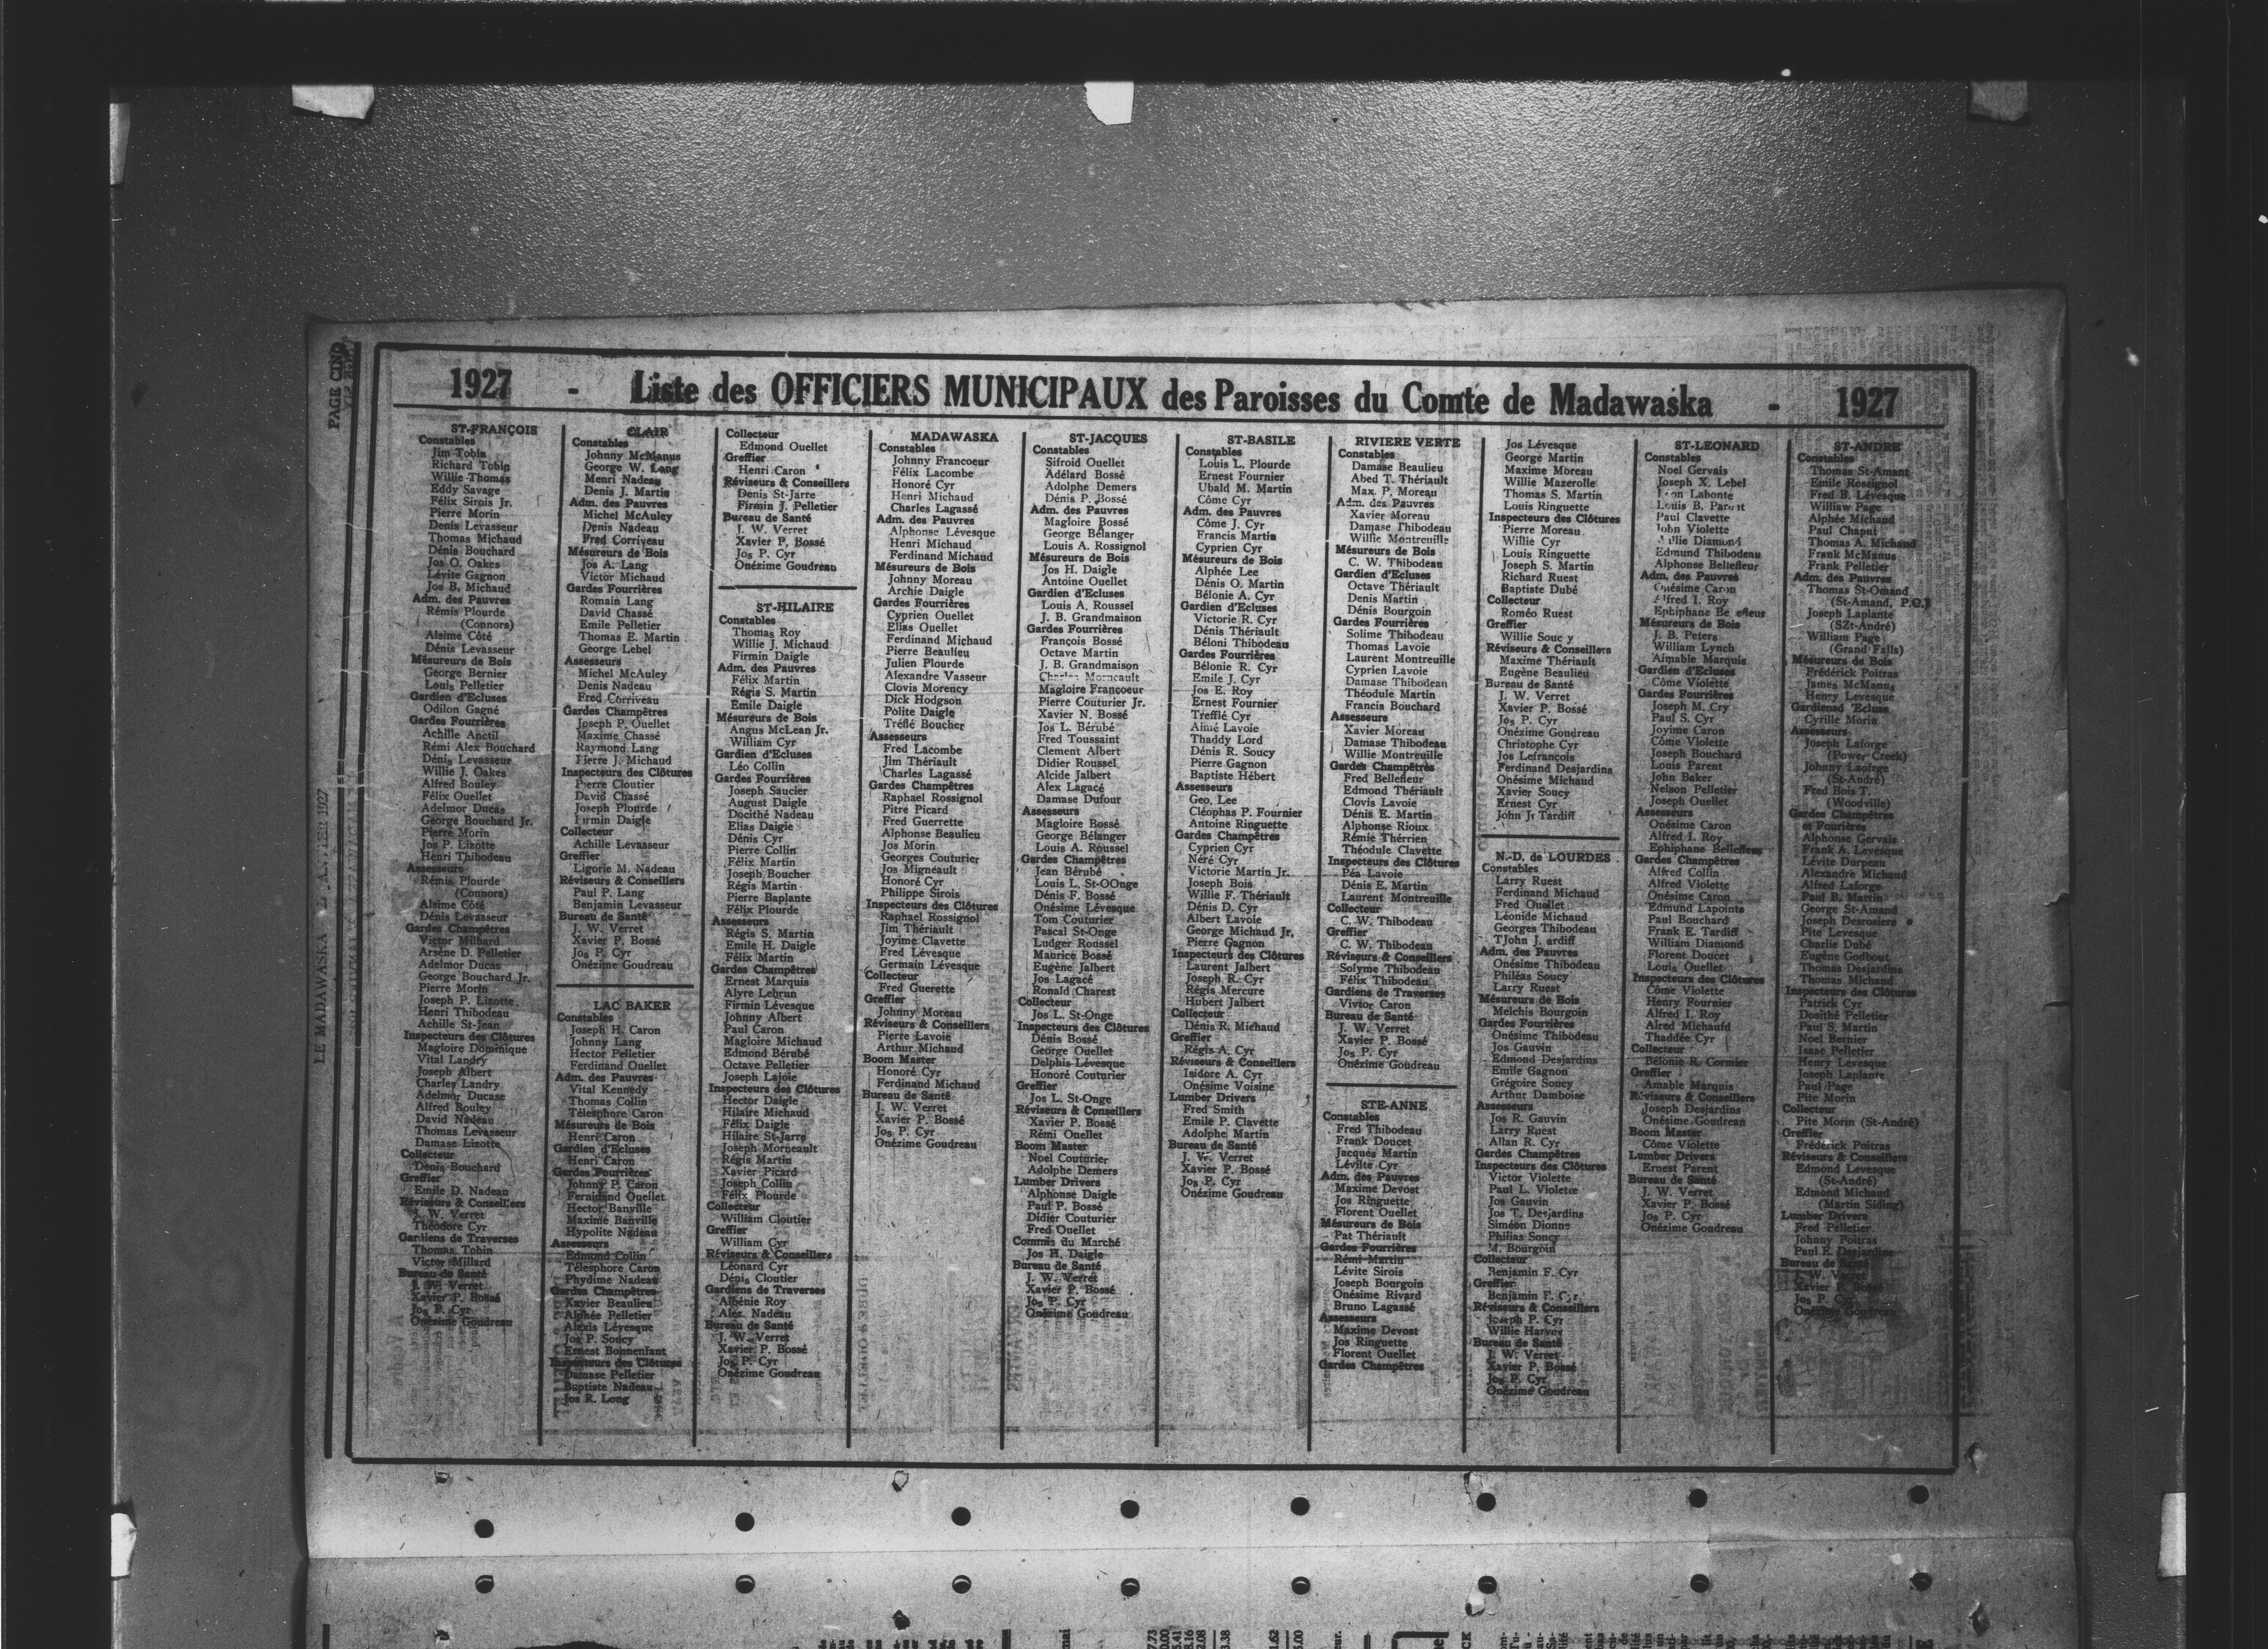 PAGE CINQ
LE MADAWASKA
1927
1927 - Liste des OFFICIERS MUNICIPAUX des Paroisses du Comté de Madawaska - 1927
ST-FRANÇOIS
Constables
Jim Tobin
Richard Tobin
Willie Thomas
Eddy Savage
Félix Sirois Jr.
Pierre Morin
Denis Levasseur
Thomas Michaud
Dénis Bouchard
Jos O. Oakes
Lévite Gagnon
Jos B. Michaud
Adm. des Pauvres
Rémis Plourde
(Connors)
Alsime Côté
Dénis Levasseur
Mésureurs de Bois
George Bernier
Louis Pelletier
Gardien d'Ecluses
Odilon Gagné
Gardes Fourrières
Achille Anctil
Rémi Alex Bouchard
Dénis Levasseur
Willie J. Oakes
Alfred Bouley
Félix Ouellet
Adelmor Ducas
George Bouchard Jr.
Pierre Morin
Jos P. Lizotte
Henri Thibodeau
Assesseurs
Rémis Plourde
(Connors)
Alsime Côté
Dénis Levasseur
Gardes Champêtres
Victor Milhard
Arsène D. Pelletier
Adelmor Ducas
George Bouchard Jr.
Pierre Morin
Joseph P. Lizotte
Henri Thibodeau
Achille St-Jean
Inspecteurs des Clôtures
Magloire Dominique
Vital Landry
Joseph Albert
Charles Landry
Adelmor Ducase
Alfred Bouley
David Nadeau
Thomas Levasseur
Damase Lizotte
Collecteur
Denis Bouchard
Greffier
Emile D. Nadeau
Réviseurs & Conseillers
J. W. Verret
Théodore Cyr
Gardiens de Traverses
Thomas Tobin
Victor Millard
Bureau de Santé
J. W. Verret
Xavier P. Bossé
Jos P. Cyr
Onézime Goudreau
CLAIR
Constables
Johnny McManus
George W. Lang
Menri Nadeau
Denis J. Martin
Adm. des Pauvres
Michel McAuley
Denis Nadeau
Fred Corriveau
Mésureurs de Bois
Jos A. Lang
Victor Michaud
Gardes Fourrières
Romain Lang
David Chassé
Emile Pelletier
Thomas E. Martin
George Lebel
Assesseurs
Michel McAuley
Denis Nadeau
Fred Corriveau
Gardes Champêtres
Joseph P. Ouellet
Maxime Chassé
Raymond Lang
Pierre J. Michaud
Inspecteurs des Clôtures
Pierre Cloutier
David Chassé
Joseph Plourde
Firmin Daigle
Collecteur
Achille Levasseur
Greffier
Ligorie M. Nadeau
Réviseurs & Conseillers
Paul P. Lang
Benjamin Levasseur
Bureau de Santé
J. W. Verret
Xavier P. Bossé
Jos P. Cyr
Onézime Goudreau
LAC BAKER
Constables
Joseph H. Caron
Johnny Lang
Hector Pelletier
Ferdinand Ouellet
Adm. des Pauvres
Vital Kennedy
Thomas Collin
Télesphore Caron
Mésureurs de Bois
Henri Caron
Gardien d'Ecluses
Henri Caron
Gardes Fourrières
Johnny P. Caron
Ferninand Ouellet
Hector Banville
Maxime Banville
Hypolite Nadeau
Assesseurs
Edmond Collin
Télesphore Caron
Phydime Nadeau
Gardes Champêtres
Xavier Beaulieu
Alphée Pelletier
Alexis Lévesque
Jos P. Soucy
Ernest Bonnenfant
Inspecteurs des Clôtures
Damase Pelletier
Baptiste Nadeau
Jos R. Long
Collecteur
Edmond Ouellet
Greffier
Henri Caron
Réviseurs & Conseillers
Denis St-Jarre
Firmin J. Pelletier
Bureau de Santé
J. W. Verret
Xavier P. Bossé
Jos P. Cyr
Onézime Goudreau
ST-HILAIRE
Constables
Thomas Roy
Willie J. Michaud
Firmin Daigle
Adm. des Pauvres
Félix Martin
Régis S. Martin
Emile Daigle
Mésureurs de Bois
Angus McLean Jr.
William Cyr
Gardien d'Ecluses
Léo Collin
Gardes Fourrières
Joseph Saucier
August Daigle
Docithé Nadeau
Elias Daigle
Dénis Cyr
Pierre Collin
Félix Martin
Joseph Boucher
Régis Martin
Pierre Baplante
Félix Plourde
Assesseurs
Régis S. Martin
Emile H. Daigle
Félix Martin
Gardes Champêtres
Ernest Marquis
Alyre Lebrun
Firmin Lévesque
Johnny Albert
Paul Caron
Magloire Michaud
Edmond Bérubé
Octave Pelletier
Joseph Lajoie
Inspecteurs des Clôtures
Hector Daigle
Hilaire Michaud
Félix Daigle
Hilaire St-Jarre
Joseph Morneault
Régis Martin
Xavier Picard
Joseph Collin
Félix Plourde
Collecteur
William Cloutier
Greffier
William Cyr
Réviseurs & Conseillers
Léonard Cyr
Dénis Cloutier
Gardiens de Traverses
Albénie Roy
Alex. Nadeau
Bureau de Santé
J. W. Verret
Xavier P. Bossé
Jos P. Cyr
Onézime Goudreau
MADAWASKA
Constables
Johnny Francoeur
Félix Lacombe
Honoré Cyr
Henri Michaud
Charles Lagassé
Adm. des Pauvres
Alphonse Lévesque
Henri Michaud
Ferdinand Michaud
Mésureurs de Bois
Johnny Moreau
Archie Daigle
Gardes Fourrières
Cyprien Ouellet
Elias Ouellet
Ferdinand Michaud
Pierre Beaulieu
Julien Plourde
Alexandre Vasseur
Clovis Morency
Dick Hodgson
Polite Daigle
Tréflé Boucher
Assesseurs
Fred Lacombe
Jim Thériault
Charles Lagassé
Gardes Champêtres
Raphael Rossignol
Pitre Picard
Fred Guerrette
Alphonse Beaulieu
Jos Morin
Georges Couturier
Jos Migneault
Honoré Cyr
Philippe Sirois
Inspecteurs des Clôtures
Raphael Rossignol
Jim Thériault
Joyime Clavette
Fred Lévesque
Germain Lévesque
Collecteur
Fred Guerette
Greffier
Johnny Moreau
Réviseurs & Conseillers
Pierre Lavoie
Arthur Michaud
Boom Master
Honoré Cyr
Ferdinand Michaud
Bureau de Santé
J. W. Verret
Xavier P. Bossé
Jos P. Cyr
Onézime Goudreau
ST-JACQUES
Constables
Sifroid Ouellet
Adélard Bossé
Adolphe Demers
Dénis P. Bossé
Adm. des Pauvres
Magloire Bossé
George Bélanger
Louis A. Rossignol
Mésureurs de Bois
Jos H. Daigle
Antoine Ouellet
Gardien d'Ecluses
Louis A. Roussel
J. B. Grandmaison
Gardes Fourrières
François Bossé
Octave Martin
J. B. Grandmaison
Charles Morneault
Magloire Françoeur
Pierre Couturier Jr.
Xavier N. Bossé
Jos L. Bérubé
Fred Toussaint
Clement Albert
Didier Roussel
Alcide Jalbert
Alex Lagacé
Damase Dufour
Assesseurs
Magloire Bossé
George Bélanger
Louis A. Roussel
Gardes Champêtres
Jean Bérubé
Louis L. St-OOnge
Dénis F. Bossé
Onésime Lévesque
Tom Couturier
Pascal St-Onge
Ludger Roussel
Maurice Bossé
Eugène Jalbert
Jos Lagacé
Ronald Charest
Collecteur
Jos L. St-Onge
Inspecteurs des Clôtures
Dénis Bossé
George Ouellet
Delphis Lévesque
Honoré Couturier
Greffier
Jos L. St-Onge
Réviseurs & Conseillers
Xavier P. Bossé
Rémi Ouellet
Boom Master
Noel Couturier
Adolphe Demers
Lumber Drivers
Alphonse Daigle
Paul P. Bossé
Didier Couturier
Fred Ouellet
Commis du Marché
Jos H. Daigle
Bureau de Santé
J. W. Verret
Xavier P. Bossé
Jos P. Cyr
Onézime Goudreau
ST-BASILE
Constables
Louis L. Plourde
Ernest Fournier
Ubald M. Martin
Côme Cyr
Adm. des Pauvres
Côme J. Cyr
Francis Martin
Cyprien Cyr
Mésureurs de Bois
Alphée Lee
Dénis O. Martin
Bélonie A. Cyr
Gardien d'Ecluses
Victorie R. Cyr
Dénis Thériault
Béloni Thibodeau
Gardes Fourrières
Bélonie R. Cyr
Emile J. Cyr
Jos E. Roy
Ernest Fournier
Trefflé Cyr
Aimé Lavoie
Thaddy Lord
Dénis R. Soucy
Pierre Gagnon
Baptiste Hébert
Assesseurs
Geo. Lee
Cléophas P. Fournier
Antoine Ringuette
Gardes Champêtres
Cyprien Cyr
Néré Cyr
Victorie Martin Jr.
Joseph Bois
Willie F. Thériault
Dénis D. Cyr
Albert Lavoie
George Michaud Jr.
Pierre Gagnon
Inspecteurs des Clôtures
Laurent Jalbert
Joseph R. Cyr
Régis Mercure
Hubert Jalbert
Collecteur
Dénis R. Michaud
Greffier
Régis A. Cyr
Réviseurs & Conseillers
Isidore A. Cyr
Onésime Voisine
Lumber Drivers
Fred Smith
Emile P. Clavette
Adolphe Martin
Bureau de Santé
J. W. Verret
Xavier P. Bossé
Jos P. Cyr
Onézime Goudreau
RIVIERE VERTE
Constables
Damase Beaulieu
Abed T. Thériault
Max. P. Moreau
Adm. des Pauvres
Xavier Moreau
Damase Thibodeau
Willie Montreuille
Mésureurs de Bois
C. W. Thibodeau
Gardien d'Ecluses
Octave Thériault
Denis Martin
Dénis Bourgoin
Gardes Fourrières
Solime Thibodeau
Thomas Lavoie
Laurent Montreuille
Cyprien Lavoie
Damase Thibodeau
Théodule Martin
Francis Bouchard
Assesseurs
Xavier Moreau
Damase Thibodeau
Willie Montreuille
Gardes Champêtres
Fred Bellefleur
Edmond Thériault
Clovis Lavoie
Dénis E. Martin
Alphonse Rioux
Rémie Thérrien
Théodule Clavette
Inspecteurs des Clôtures
Péa Lavoie
Dénis E. Martin
Laurent Montreuille
Collecteur
C. W. Thibodeau
Greffier
C. W. Thibodeau
Réviseurs & Conseillers
Solyme Thibodeau
Félix Thibodeau
Gardiens de Traverses
Vivtor Caron
Bureau de Santé
J. W. Verret
Xavier P. Bossé
Jos P. Cyr
Onézime Goudreau
STE-ANNE
Constables
Fred Thibodeau
Frank Doucet
Jacques Martin
Lévilte Cyr
Adm. des Pauvres
Maxime Devost
Jos Ringuette
Florent Ouellet
Mésureurs de Bois
Pat Thériault
Gardes Fourrières
Rémi Martin
Lévite Sirois
Joseph Bourgoin
Onésime Rivard
Bruno Lagassé
Assesseurs
Maxime Devost
Jos Ringuette
Florent Ouellet
Gardes Champêtres
Jos Lévesque
George Martin
Maxime Moreau
Willie Mazerolle
Thomas S. Martin
Louis Ringuette
Inspecteurs des Clôtures
Pierre Moreau
Willie Cyr
Louis Ringuette
Joseph S. Martin
Richard Ruest
Baptiste Dubé
Collecteur
Roméo Ruest
Greffier
Willie Souc y
Réviseurs & Conseillers
Maxime Thériault
Eugène Beaulieu
Bureau de Santé
J. W. Verret
Xavier P. Bossé
Jos P. Cyr
Onézime Goudreau
Christophe Cyr
Jos Lefrançois
Ferdinand Desjardins
Onésime Michaud
Xavier Soucy
Ernest Cyr
John J. Tardiff
N.-D. de LOURDES
Constables
Larry Ruest
Ferdinand Michaud
Fred Ouellet
Léonide Michaud
Georges Thibodeau
TJohn J. ardiff
Adm. des Pauvres
Onésime Thibodeau
Philéas Soucy
Larry Ruest
Mésureurs de Bois
Melchis Bourgoin
Gardes Fourrières
Onésime Thibodeau
Jos Gauvin
Edmond Desjardins
Emile Gagnon
Grégoire Soucy
Arthur Damboise
Assesseurs
Jos R. Gauvin
Larry Ruest
Allan R. Cyr
Gardes Champêtres
Inspecteurs des Clôtures
Victor Violette
Paul L. Violette
Jos Gauvin
Jos T. Desjardins
Siméon Dionne
Philias Soucy
M. Bourgoin
Collecteur
Benjamin F. Cyr
Greffier
Benjamin F. Cyr
Réviseurs & Conseillers
Joseph P. Cyr
Willie Harvey
Bureau de Santé
J. W. Verret
Xavier P. Bossé
Jos P. Cyr
Onézime Goudreau
ST-LEONARD
Constables
Noel Gervais
Joseph X. Lebel
Labonte
Louis B. Parent
Paul Clavette
John Violette
Diamond
Edmund Thibodeau
Alphonse Bellefleur
Adm. des Pauvres
Onésime Caron
Alfred I. Roy
Ephiphane
Mésureurs de Bois
J. B. Peters
William Lynch
Aimable Marquis
Gardien d'Ecluses
Côme Violette
Gardes Fourrières
Joseph M. Cry
Paul S. Cyr
Joyime Caron
Côme Violette
Joseph Bouchard
Louis Parent
John Baker
Nelson Pelletier
Joseph Ouellet
Assesseurs
Onésime Caron
Alfred I. Roy
Ephiphane Bellefleus
Gardes Champêtres
Alfred Collin
Alfred Violette
Onésime Caron
Edmund Lapointe
Paul Bouchard
Frank E. Tardiff
William Diamond
Florent Doucet
Louis Ouellet
Inspecteurs des Clôtures
Côme Violette
Henry Fournier
Alfred I. Roy
Alred Michaufd
Thaddée Cyr
Collecteur
Bélonie R. Cormier
Greffier
Amable Marquis
Réviseurs & Conseillers
Joseph Desjardins
Onésime Goudreau
Boom Master
Côme Violette
Lumber Drivers
Ernest Parent
Bureau de Santé
J. W. Verret
Xavier P. Bossé
Jos P. Cyr
Onézime Goudreau
ST-ANDRE
Constables
Thomas St-Amant
Emile Rossignol
Fred B. Lévesque
Williaw Page
Alphée Michaud
Paul Chaput
Thomas A. Michaud
Frank McManus
Frank Pelletier
Adm. des Pauvres
Thomas St-Omand
(St-Amand, P.O.)
Joseph Laplante
(SZt-André)
William Page
(Grand Falls)
Mésureurs de Bois
Frédérick Poitras
James McManus
Henry Levesque
Gardiensd 'Ecluse
Cyrille Morin
Assesseurs
Joseph Laforge
(Power Creek)
Johnny Laofrge
(St-André)
Fred Bois T.
(Woodville)
Gardes Champêtres
et Fourières
Alphonse Gervais
Frank A. Levesque
Lévite Durpeau
Alexandre Michaud
Alfred Laforge
Paul B. Martin
George St-Amand
Joseph Desrosiers
Pite Levesque
Charlie Dubé
Eugène Godbout
Thomas Desjardins
Thomas Michaud
Inspecteurs des Clôtures
Patrick Cyr
Dosithé Pelletier
Paul S. Martin
Noel Bernier
Isaac Pelletier
Henry Levesque
Joseph Laplante
Paul Page
Pite Morin
Collecteur
Pite Morin (St-André)
Greffier
Frédérick Poitras
Réviseurs & Conseillers
Edmond Levesque
(St-André)
Edmond Michaud
(Martin Siding)
Lumber Drivers
Fred Pelletier
Johnny Poitras
Paul E. Desjardins
Bureau de Santé
J. W. Verret
Xavier P. Bossé
Jos P. Cyr
Onézime Goudreau